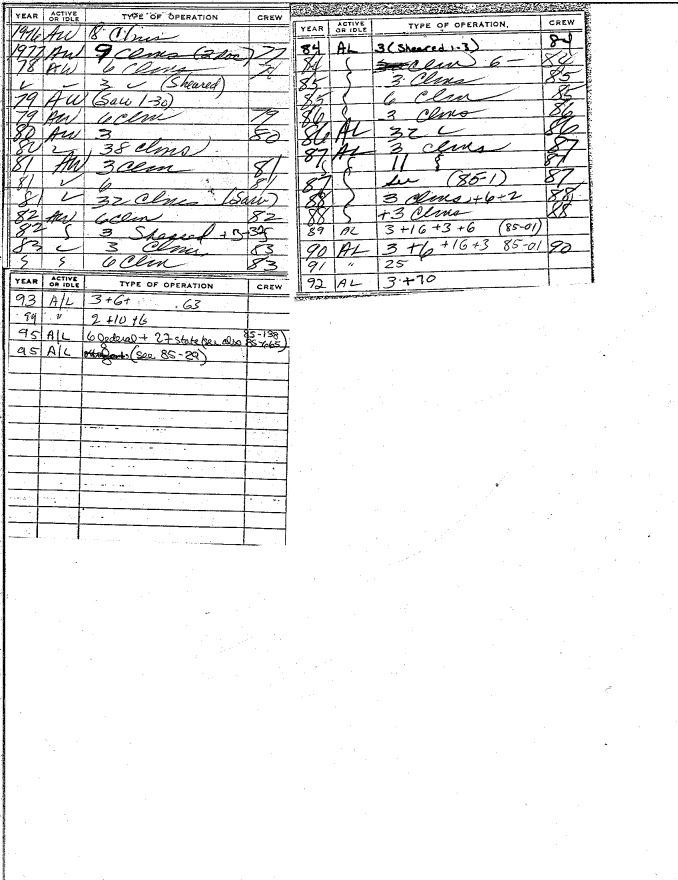 YEAR ACTIVE OR IDLE TYPE OF OPERATION CREW
1976 AW 8 Clms
1977 AW 9 Clms (2 loc) 77
78 AW 6 Clms 78
✓ ✓ 3 ✓ (Sheared)
79 AW (Saw 1-30)
79 AW 6 clm 79
80 AW 3 80
80 ✓ 38 clms
81 AW 3 clm 81
81 ✓ 6 81
81 ✓ 32 Clms (Saw)
82 AW 6 clm 82
82 3 Sheared + 3-32
83 ✓ 3 Clms 83
6 Clm 83
YEAR ACTIVE OR IDLE TYPE OF OPERATION CREW
84 AL 3 (Sheared 1-3) 84
84 Clm 6 - 84
85 3 Clms 85
85 6 Clm 85
86 3 Clms 86
86 AL 32 ✓ 86
87 AL 3 clms 87
11 87
87 See (85-1) 87
88 3 clms + 6 + 2 88
88 + 3 Clms 88
89 AL 3 + 16 + 3 + 6 (85-01)
90 AL 3 + 6 + 16 + 3 85-01 90
91 " 25
92 AL 3 + 70
YEAR ACTIVE OR IDLE TYPE OF OPERATION CREW
93 A/L 3 + 6 + .63
94 " 2 + 10 + 6
95 A/L 6 federal + 27 state (see also 85-138
95 A/L (see 85-29)